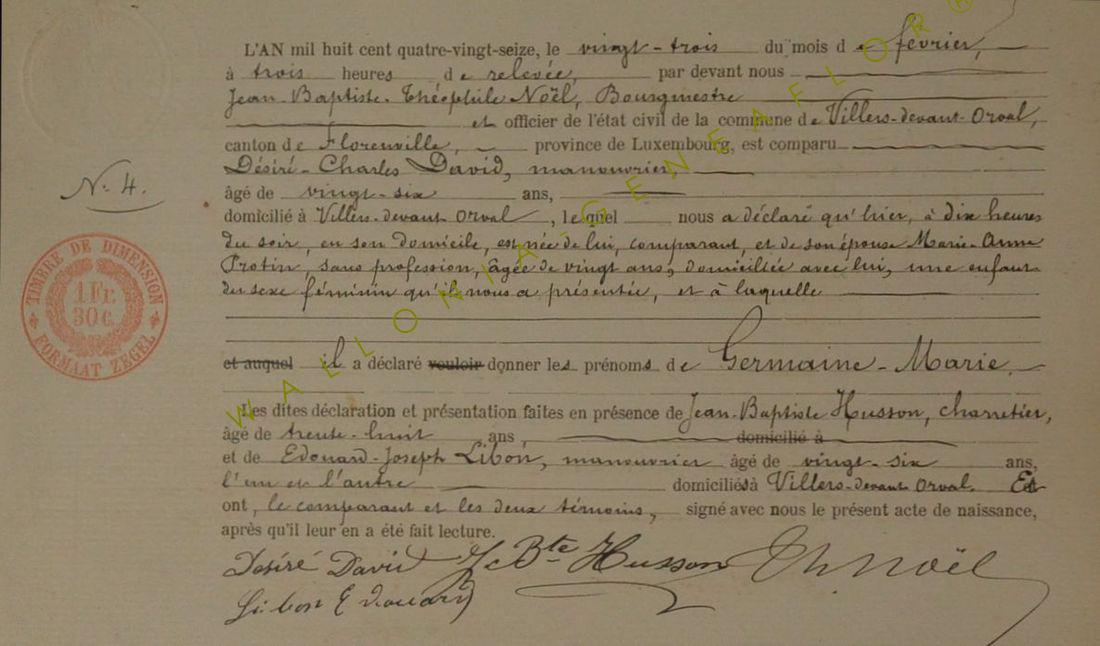 L'AN mil huit cent quatre-vingt-seize, le vingt-trois du mois de février,
à trois heures de relevée, par devant nous
Jean-Baptiste-Théophile Noël, Bourgmestre
et officier de l'état civil de la commune de Villers-devant-Orval,
canton de Florenville, province de Luxembourg, est comparu
Désiré-Charles David, manouvrier
N° 4.
âgé de vingt-six ans,
domicilié à Villers-devant-Orval, lequel nous a déclaré qu'hier, à dix heures
du soir, en son domicile, est née de lui, comparant, et de son épouse Marie-Anne
Protin, sans profession, âgée de vingt ans, domiciliée avec lui, une enfant
du sexe féminin qu'il nous a présentée, et à laquelle
TIMBRE DE DIMENSION
1 Fr.
30 c.
FORMAAT ZEGEL
et auquel il a déclaré vouloir donner les prénoms de Germaine-Marie.
Les dites déclaration et présentation faites en présence de Jean-Baptiste Husson, charretier,
âgé de trente-huit ans, domicilié à
et de Edouard-Joseph Libon, manouvrier âgé de vingt-six ans,
l'un et l'autre domiciliés à Villers-devant-Orval. Et
ont, le comparant et les deux témoins, signé avec nous le présent acte de naissance,
après qu'il leur en a été fait lecture.
Désiré David J Bte Husson Th Noël
Libon Edouard
WALLONIA GENEALOR®